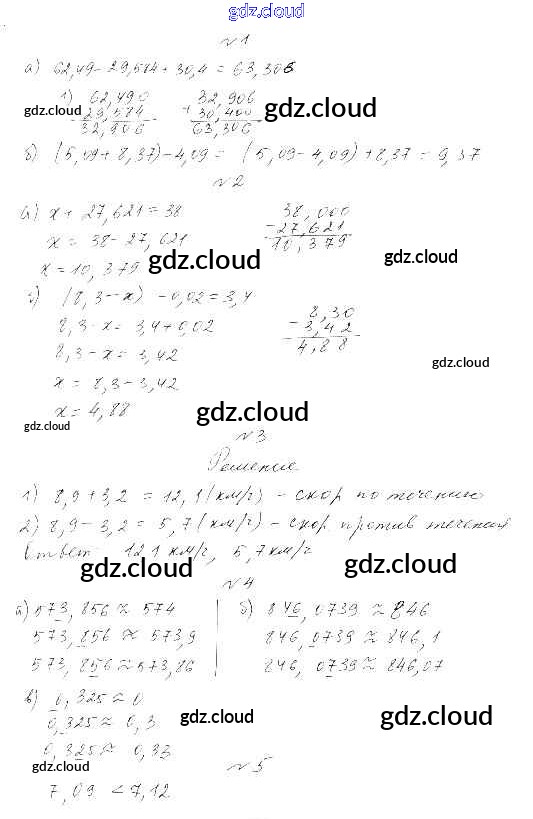 gdz.cloud
№1
а) 62,49 - 29,584 + 30,4 = 63,306
1) 62,490 32,906
- 29,584 + 30,400
gdz.cloud gdz.cloud
32,906 63,306
б) (5,09 + 8,37) - 4,09 = (5,09 - 4,09) + 8,37 = 9,37
№2
а) x + 27,621 = 38 38,000
x = 38 - 27,621 - 27,621
x = 10,379 10,379
gdz.cloud gdz.cloud
(8,3 - x) - 0,02 = 3,4
8,3 - x = 3,4 + 0,02 8,30
8,3 - x = 3,42 - 3,42
4,88
gdz.cloud
x = 8,3 - 3,42
x = 4,88
gdz.cloud gdz.cloud
№3
Решение
1) 8,9 + 3,2 = 12,1 (км/г) - скор по течению
2) 8,9 - 3,2 = 5,7 (км/г) - скор против течения
Ответ 12,1 км/г, 5,7 км/г
gdz.cloud gdz.cloud
№4
а) 573,856 ≈ 574 б) 846,0739 ≈ 846
573,856 ≈ 573,9 846,0739 ≈ 846,1
573,856 ≈ 573,86 846,0739 ≈ 846,07
в) 0,325 ≈ 0
0,325 ≈ 0,3
gdz.cloud gdz.cloud
0,325 ≈ 0,33
gdz.cloud
№5
7,09 < 7,12